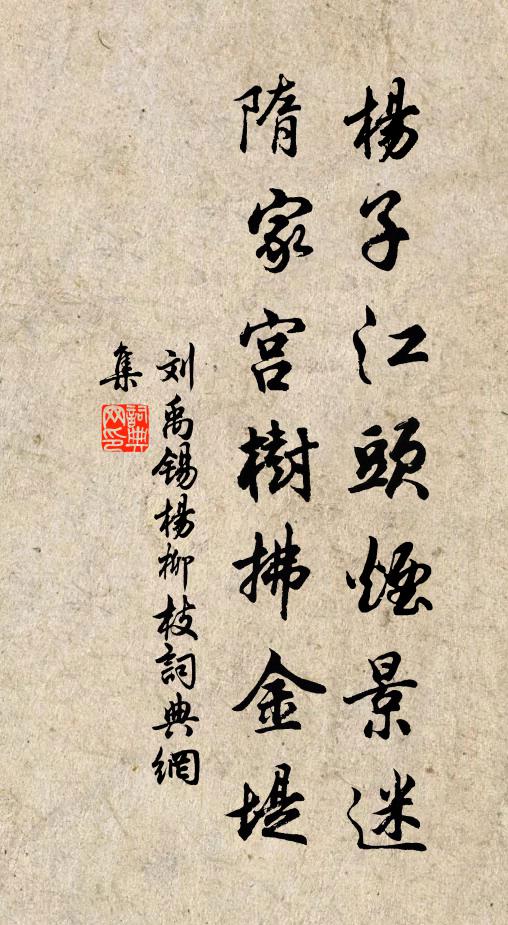 楊子江頭煙景迷
隋家宮樹拂金堤
刘禹锡楊柳枝詞典網
集
詞典网印